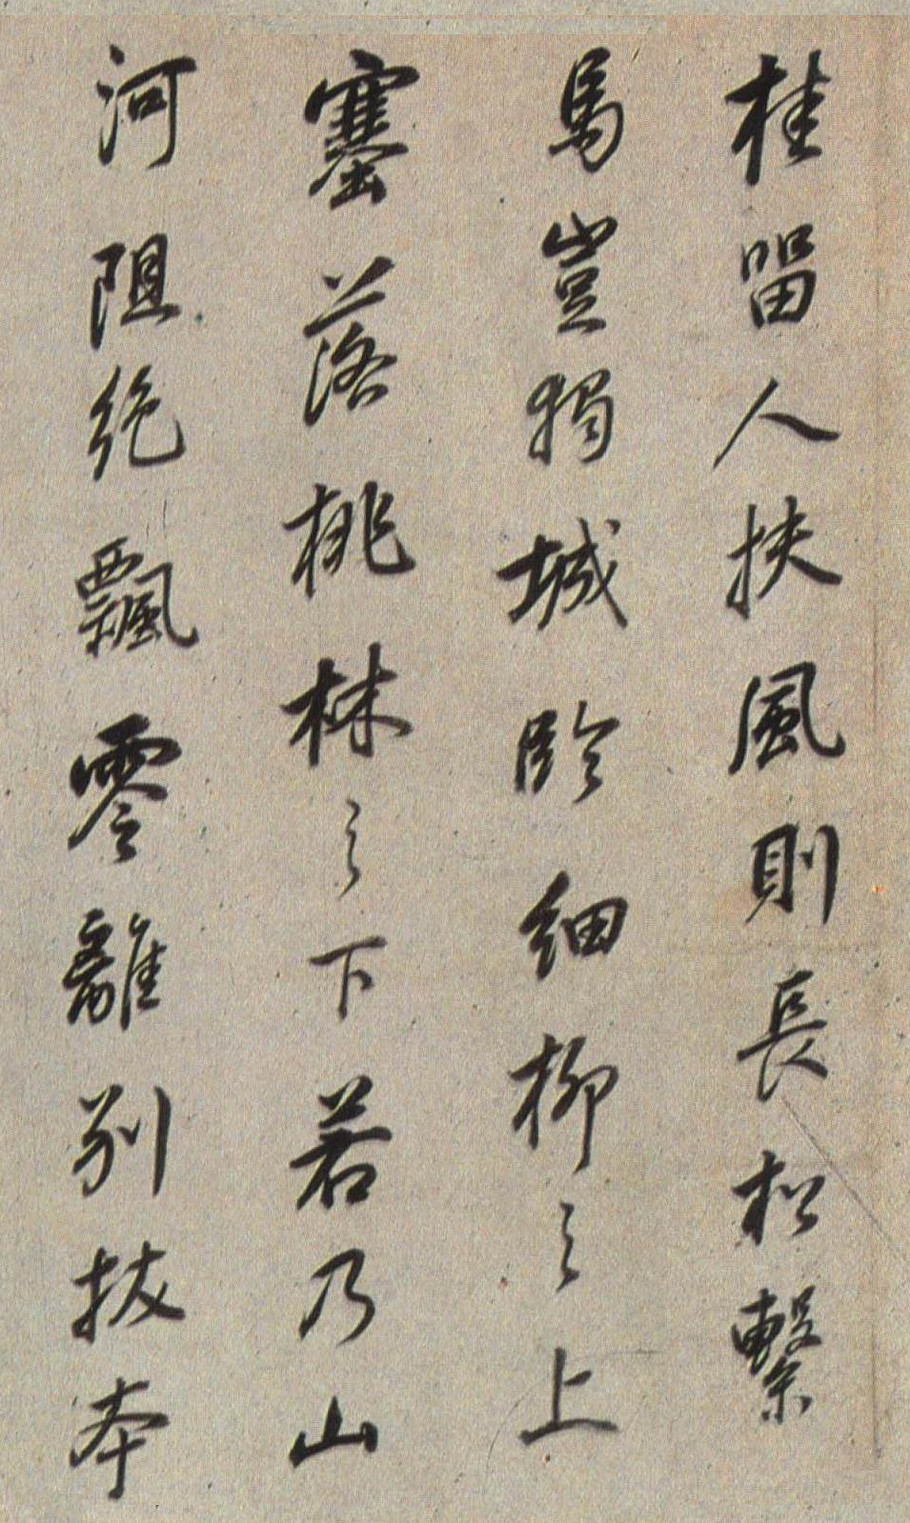 桂留人扶風則長松繫
馬豈獨城臨細柳之上
塞落桃林之下若乃山
河阻絶飄零離别拔本